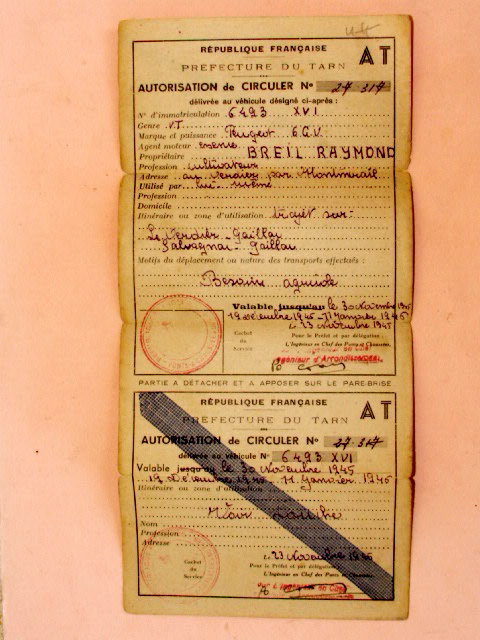 RÉPUBLIQUE FRANÇAISE
PRÉFECTURE DU TARN
AT
AUTORISATION DE CIRCULER No 27 317
délivrée au véhicule désigné ci-après :
No d'immatriculation 6493 XVI
Genre V.T
Marque et puissance Peugeot 6 C.V.
Agent moteur essence
Propriétaire BREIL RAYMOND
Profession cultivateur
Adresse au Verdier par Montmirail
Utilisé par lui même
Profession
Domicile
Itinéraire ou zone d'utilisation trajet sur
Le Verdier - Gaillac
Salvagnac - Gaillac
Motifs du déplacement ou nature des transports effectués :
Besoin agricole
Valable jusqu'au le 30 Novembre 1945
19 décembre 1945 - 11 Janvier 1946
Le 23 Novembre 1945
Cachet du Service
Pour le Préfet et par délégation :
L'Ingénieur en Chef des Ponts et Chaussées,
PARTIE A DÉTACHER ET A APPOSER SUR LE PARE-BRISE
RÉPUBLIQUE FRANÇAISE
PRÉFECTURE DU TARN
AT
AUTORISATION DE CIRCULER No 27 317
délivrée au véhicule No 6493 XVI
Valable jusqu'au le 30 Novembre 1945
19 décembre 1945 11 Janvier 1945
Itinéraire ou zone d'utilisation
Nom
Profession
Adresse
Le 23 Novembre 1945
Cachet du Service
Pour le Préfet et par délégation :
L'Ingénieur en Chef des Ponts et Chaussées,